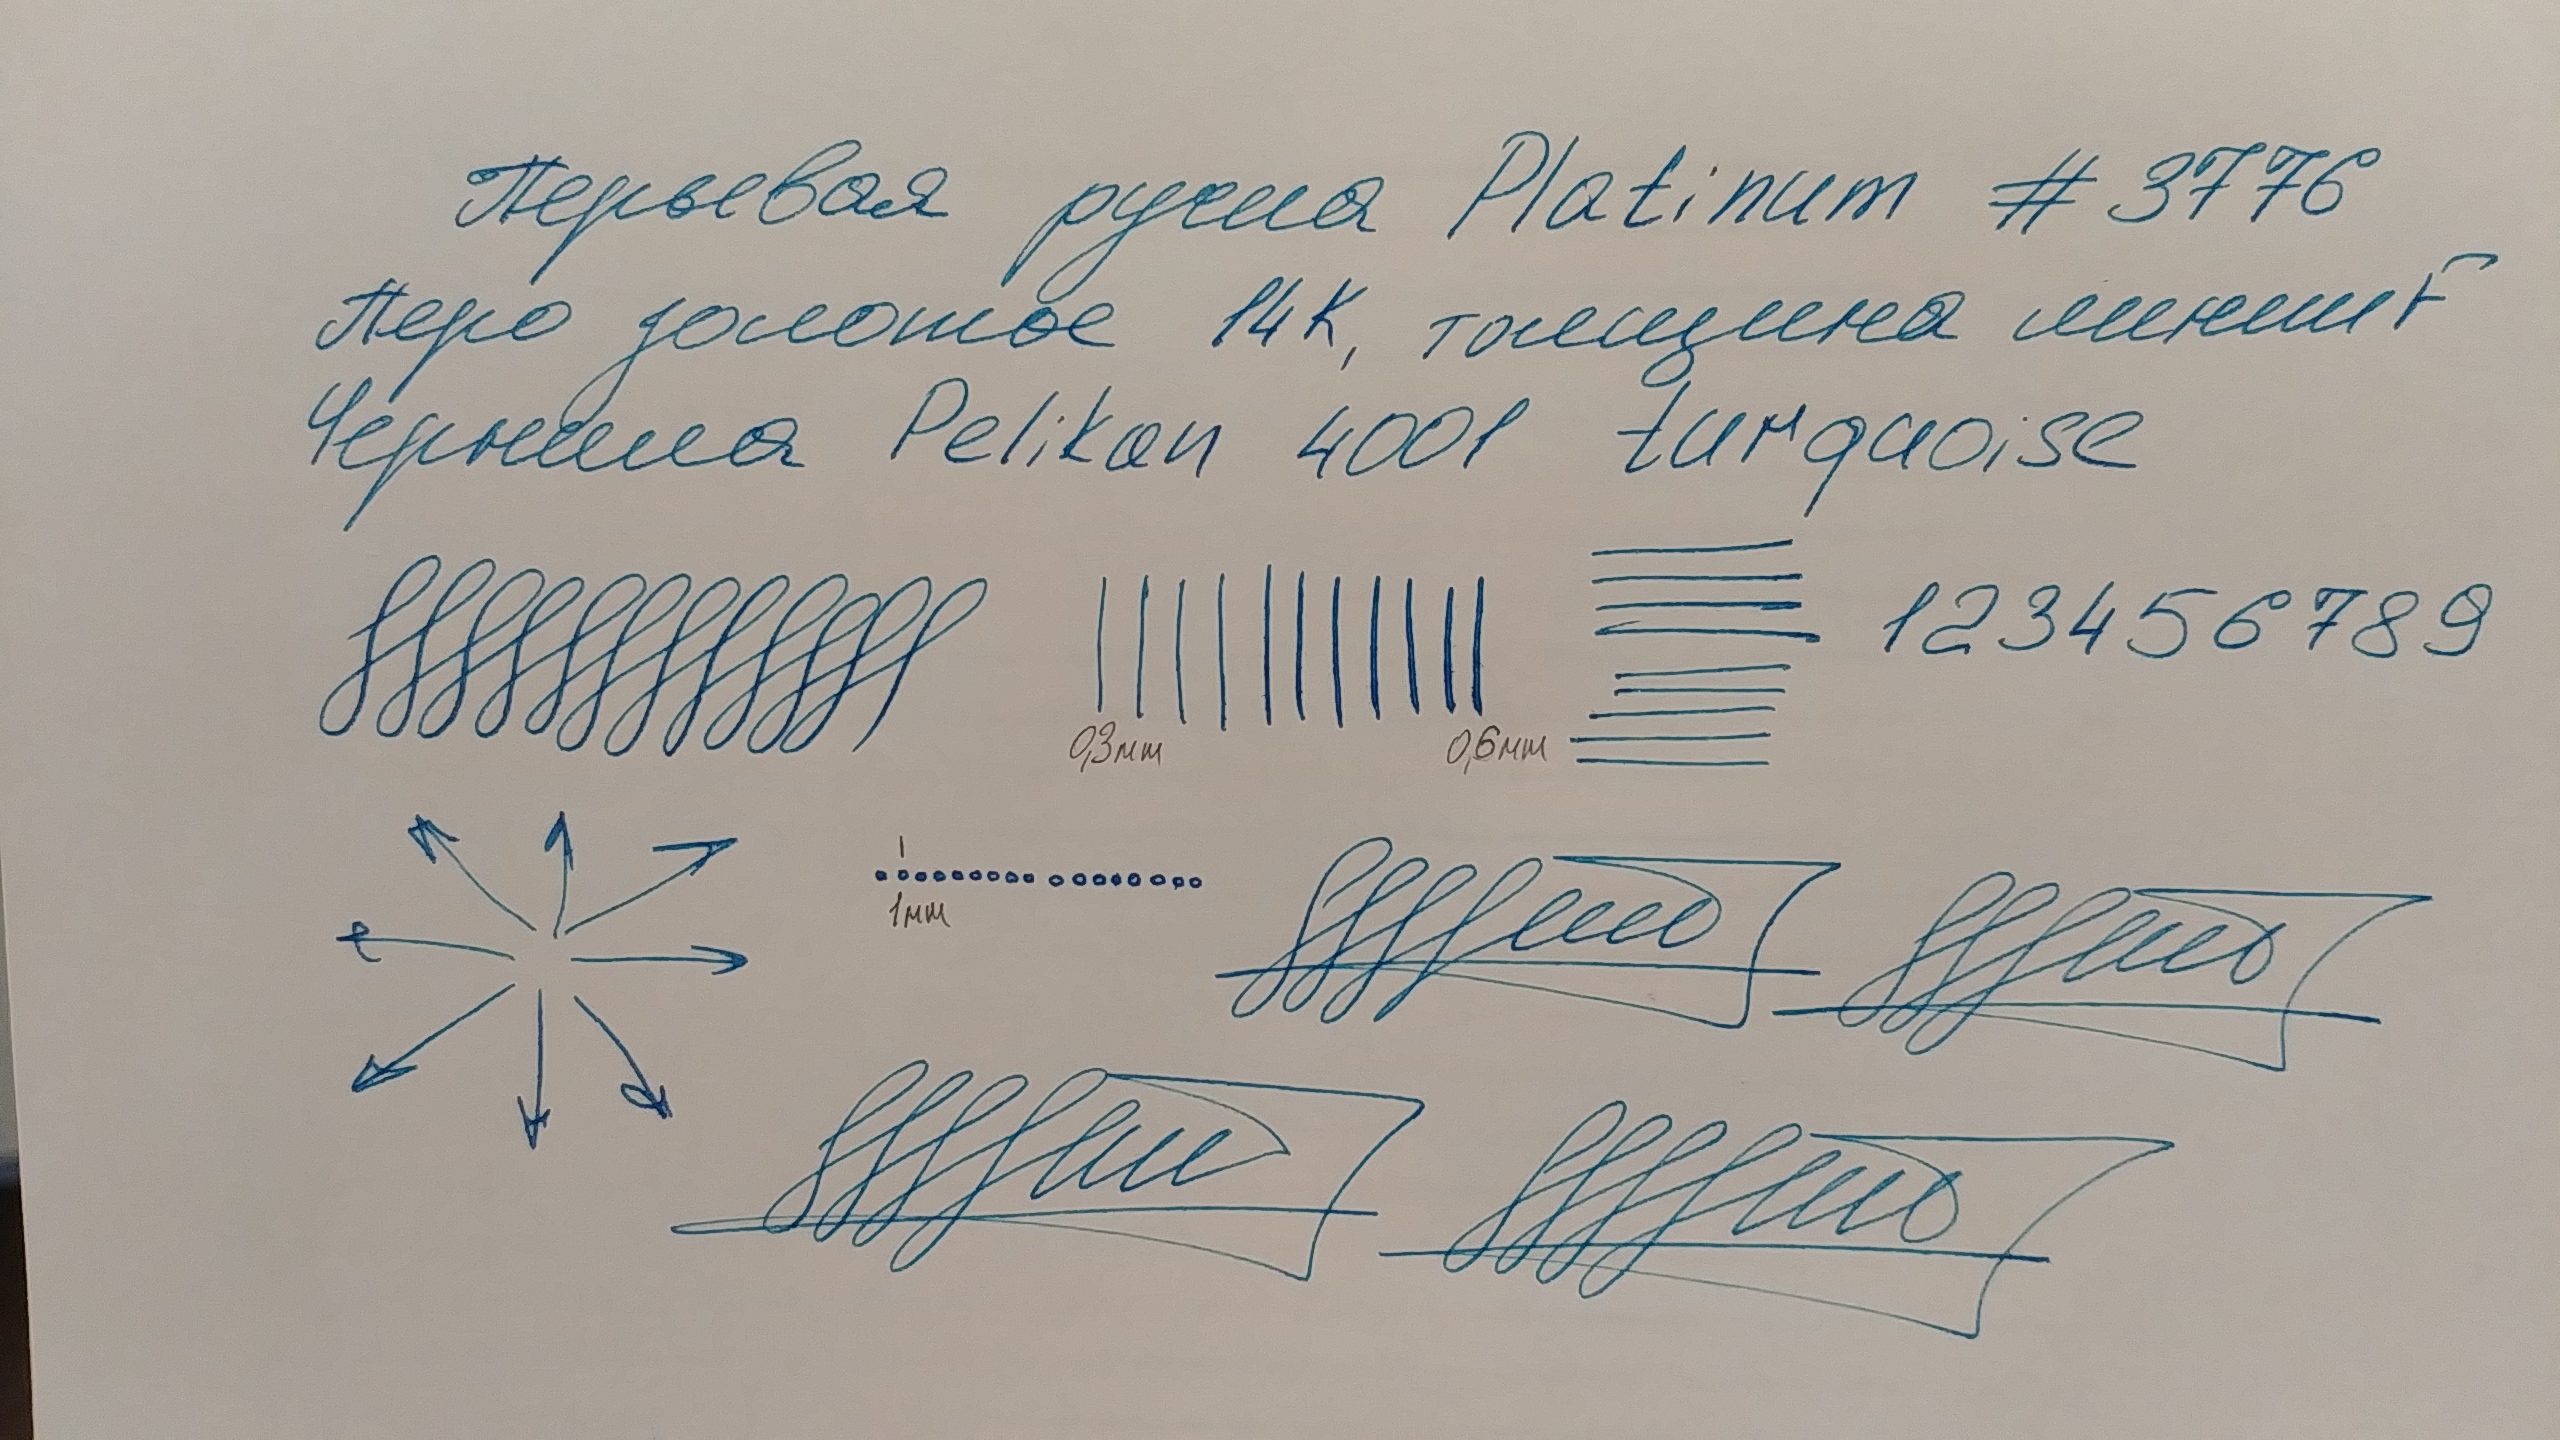 Перьевая ручка Platinum # 3776
Перо золотое 14К, толщина линии F
Чернила Pelikan 4001 turquoise
1 2 3 4 5 6 7 8 9
0,3мм 0,6мм
1мм